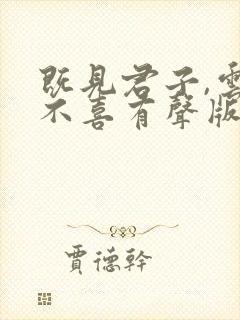 既見君子,雲
不喜有聲版
賈德幹